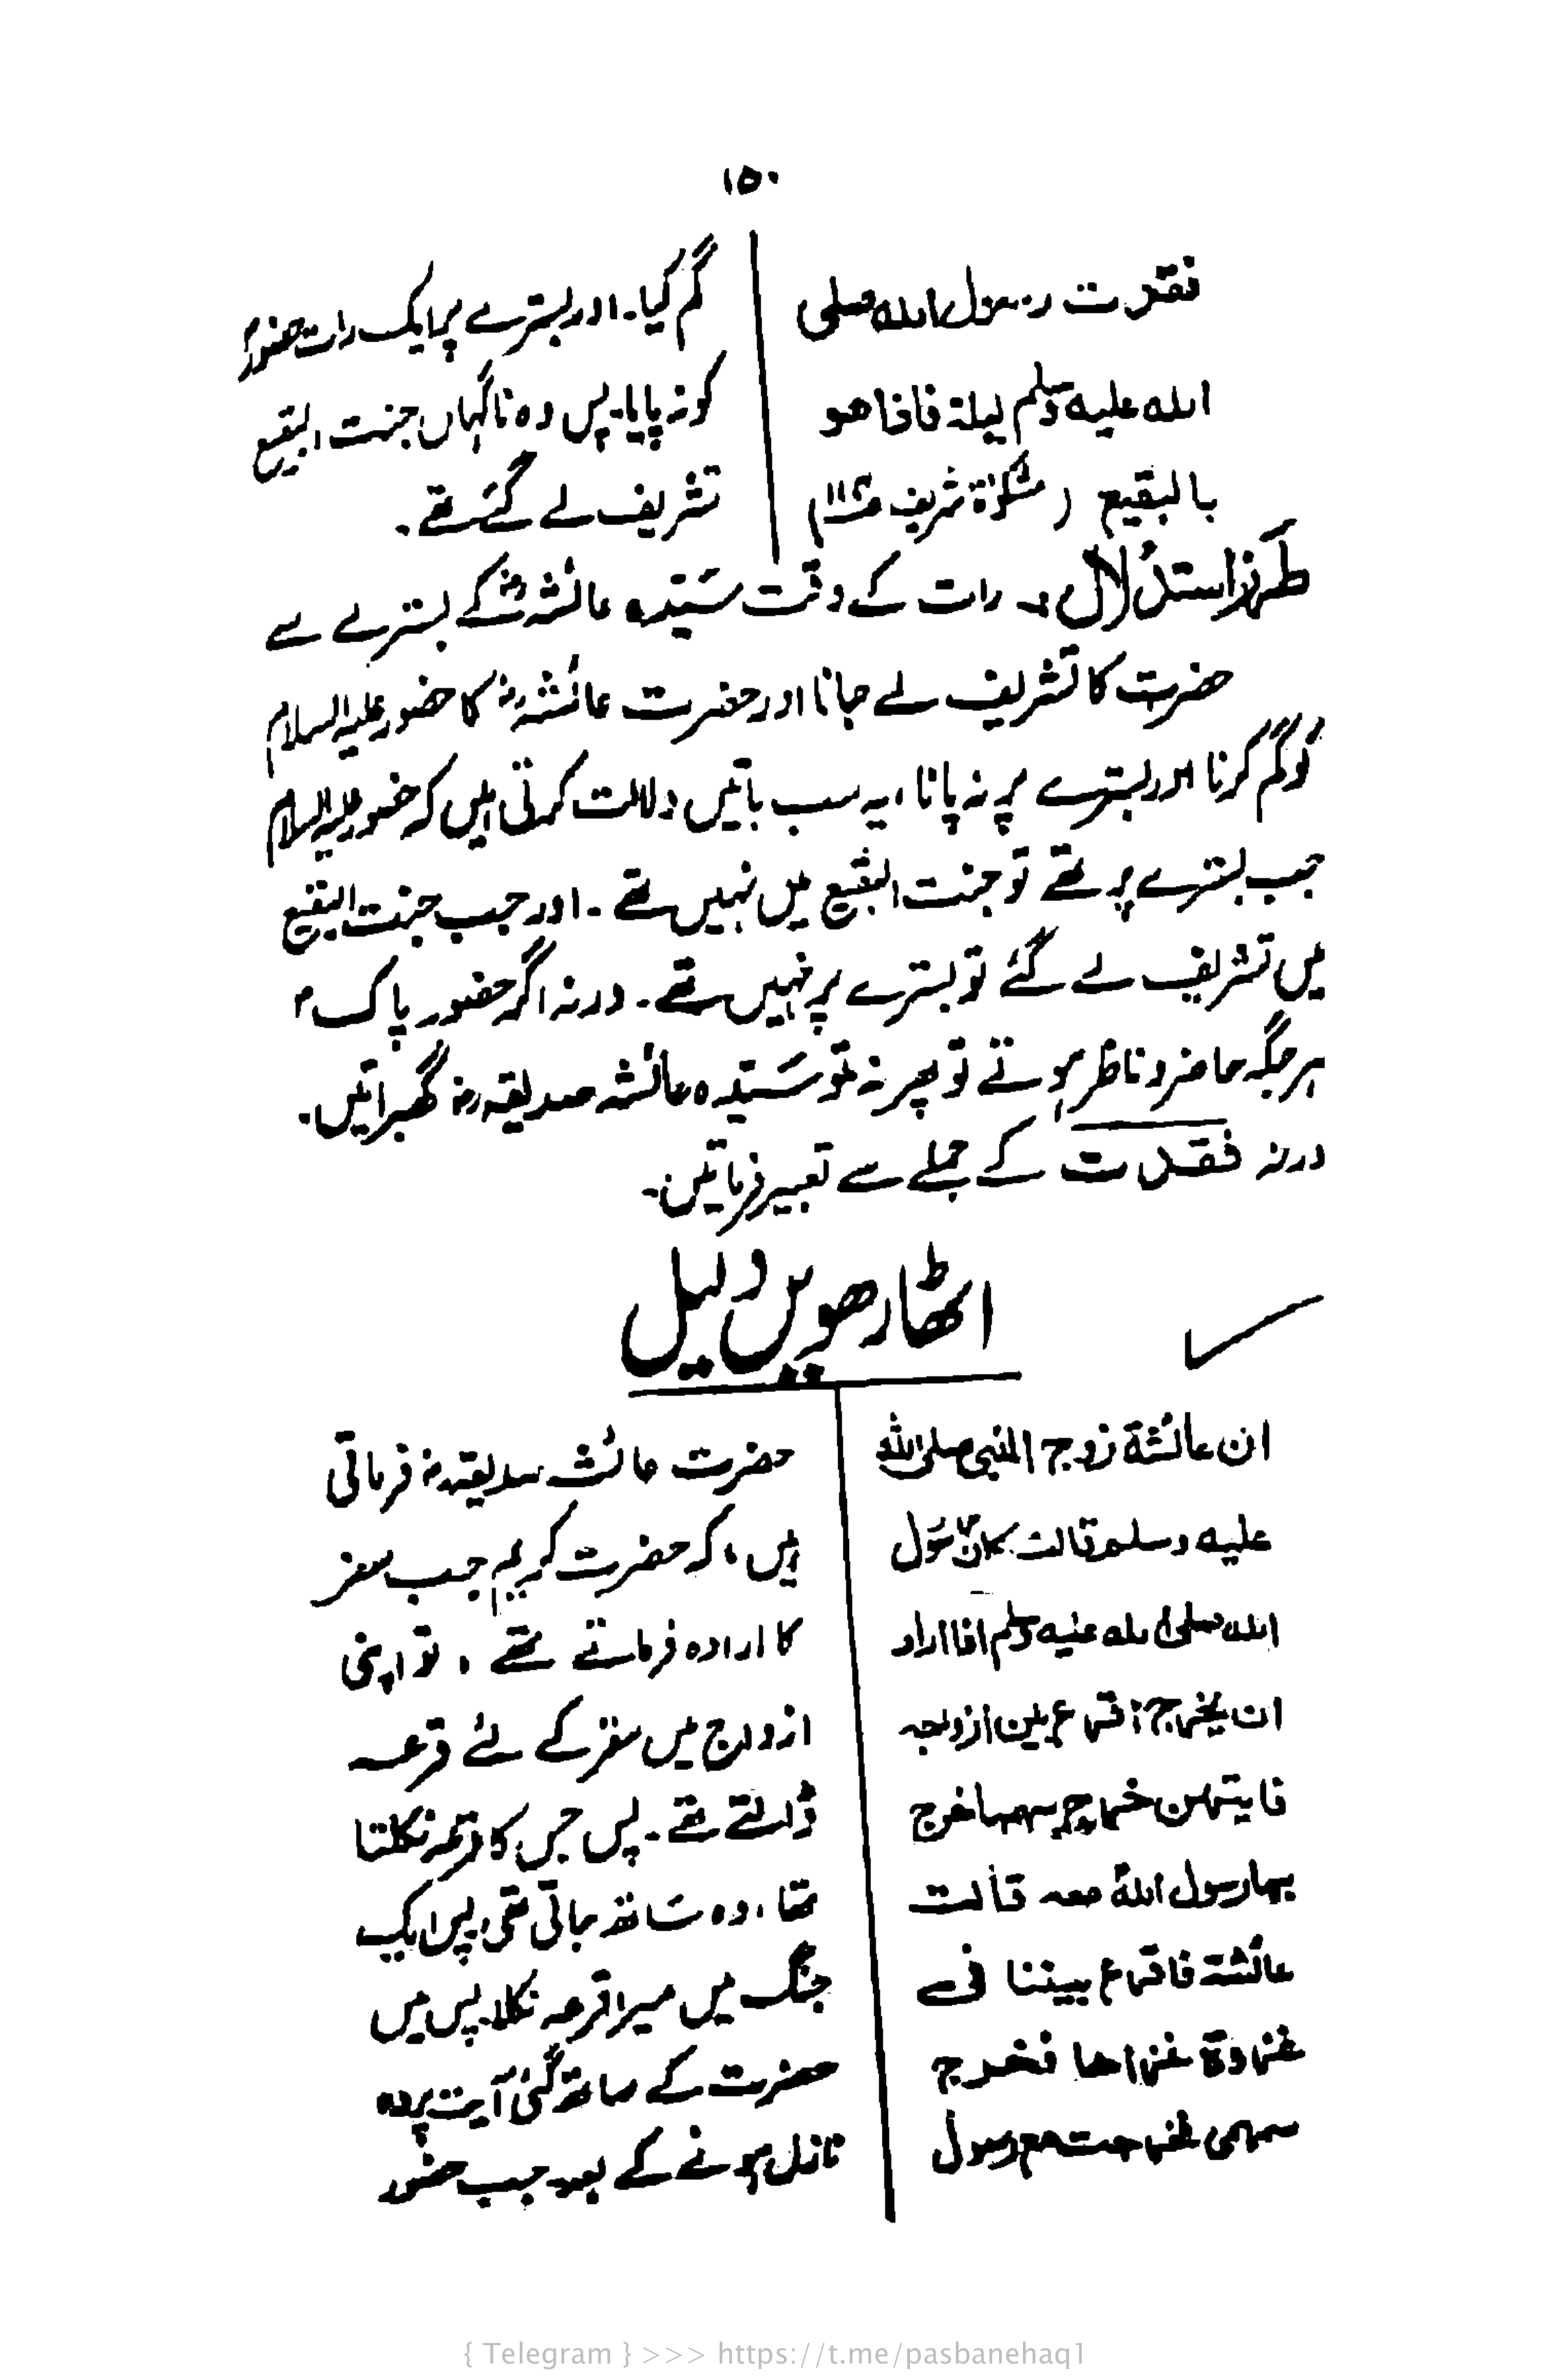 ۱۵۰
فقدت رسول الله صلی
الله علیه وسلم لیلة فاذا هو
بالبقیع (مشکوٰة شریف
گم کیا۔ اور بسترے پر ایک رات حضورؐ
کو نہ پایا۔ پس وہ ناگہاں جنت البقیع
تشریف لے گئے تھے۔
طرز استدلال :۔ رات کے وقت سیّدہ عائشہؓ کے بسترے سے
حضرت کا تشریف لے جانا اور حضرت عائشہؓ کا حضور علیہ السلام
کو گم کرنا اور بسترے پر نہ پانا، یہ سب باتیں دلالت کرتی ہیں کہ حضور علیہ السلام
جب بسترے پر تھے تو جنت البقیع میں نہیں تھے۔ اور جب جنت البقیع
میں تشریف لے گئے تو بسترے پر نہیں تھے۔ ورنہ اگر حضور پاکؐ
ہر جگہ حاضر و ناظر ہوتے تو پھر نہ تو سَیّدہ عائشہ صدیقہؓ گھبراتیں۔
ورنہ فقدت کے جملے سے تعبیر فرماتیں۔
اٹھارھویں دلیل
ان عائشة زوج النبی صلی الله
علیه وسلم قالت کان رسول
الله صلی الله علیه وسلم اذا اراد
ان یخرج اقرع بین ازواجه
فایتهن خرج سهمها خرج
بها رسول الله معه قالت
عائشة فاقرع بیننا فی
غزوة غزاها فخرج
سهمی فخرجت مع رسول
حضرت عائشہ صدیقہؓ فرماتی
ہیں، کہ حضرت کریمؐ جب سفر
کا ارادہ فرماتے تھے، تو اپنی
ازواج میں سفر کے لئے قرعہ
ڈالتے تھے۔ پس جس کا قرعہ نکلتا
تھا، وہ ساتھ جاتی تھی، پس ایک
جنگ میں میرا قرعہ نکلا۔ پس میں
حضرت کے ساتھ گئی آیت پردہ
نازل ہونے کے بعد جب حضور
{ Telegram } >>> https://t.me/pasbanehaq1